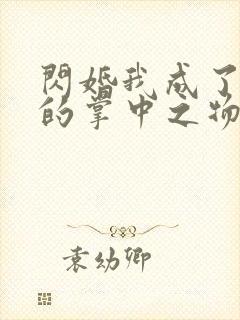 閃婚我成了
的掌中之物
袁幼卿